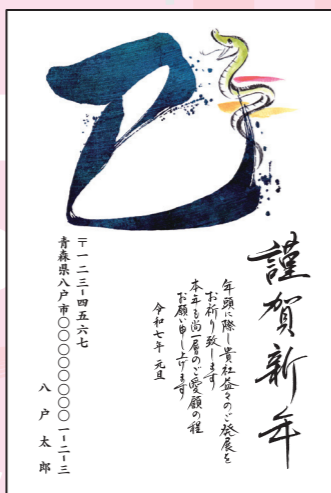 巳
謹賀新年
年頭に際し貴社益々のご発展を
お祈り致します
本年も尚一層のご愛顧の程
お願い申し上げます
令和七年 元旦
〒一二三-四五六七
青森県八戸市〇〇〇〇〇〇〇〇一-二-三
八戸太郎